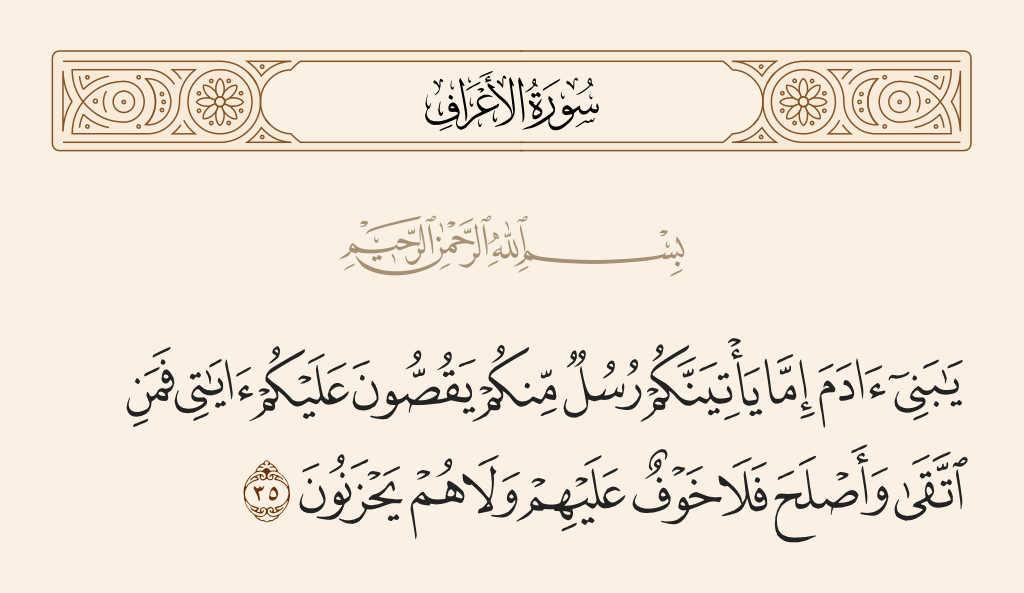 سُورَةُ الأَعْرَافِ
بِسْمِ ٱللَّهِ ٱلرَّحْمَٰنِ ٱلرَّحِيمِ
يَٰبَنِىٓ ءَادَمَ إِمَّا يَأْتِيَنَّكُمْ رُسُلٌ مِّنكُمْ يَقُصُّونَ عَلَيْكُمْ ءَايَٰتِى فَمَنِ
ٱتَّقَىٰ وَأَصْلَحَ فَلَا خَوْفٌ عَلَيْهِمْ وَلَا هُمْ يَحْزَنُونَ ٣٥